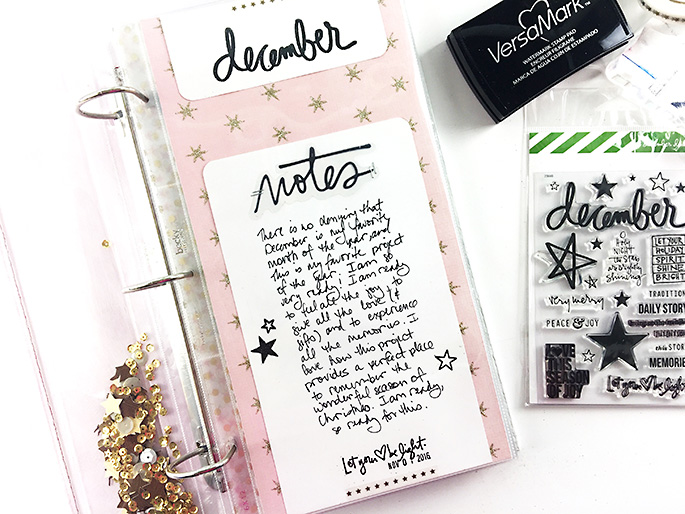 december
notes
There is no denying that
December is my favorite
month of the year, and
this is my favorite project
of the year. I am so
very ready! I am ready
to feel all the joy, to
give all the love (&
gifts) and to experience
all the memories. I
love how this project
provides a perfect place
to remember the
wonderful season of
Christmas. I am ready,
so ready for this.
Let your be light.
NOV 0 2016
VERSAMARK™
WATERMARK STAMP PAD
ENCREUR FILIGRANE
MARCA DE AGUA COJIN DE ESTAMPADO
december
O
holy
night
the stars
are brightly
shining
LET YOUR
HOLIDAY
SPIRIT
SHINE
BRIGHT
very merry
PEACE & JOY
TRADITION
DAILY STORY
this STORY
MEMORIES
LOVE
THIS
SEASON
OF JOY
Let your be light